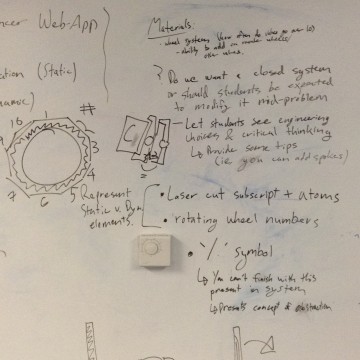 ncer Web-App
ation (Static)
namic)
#
10 1
9
3
4
7 6 5
Represent
Static v. Dyn
elements.
Materials
- wheel systems
- ability to add or
Do we want a closed system
or should students be expected
to modify it mid-problem
- Let students see engineering
choices & critical thinking
↳ Provide some tips
(ie you can add spokes)
• Laser cut subscript + atoms
• rotating wheel numbers
• "/" symbol
↳ You can't finish with this
present in system
↳ Presents concept of